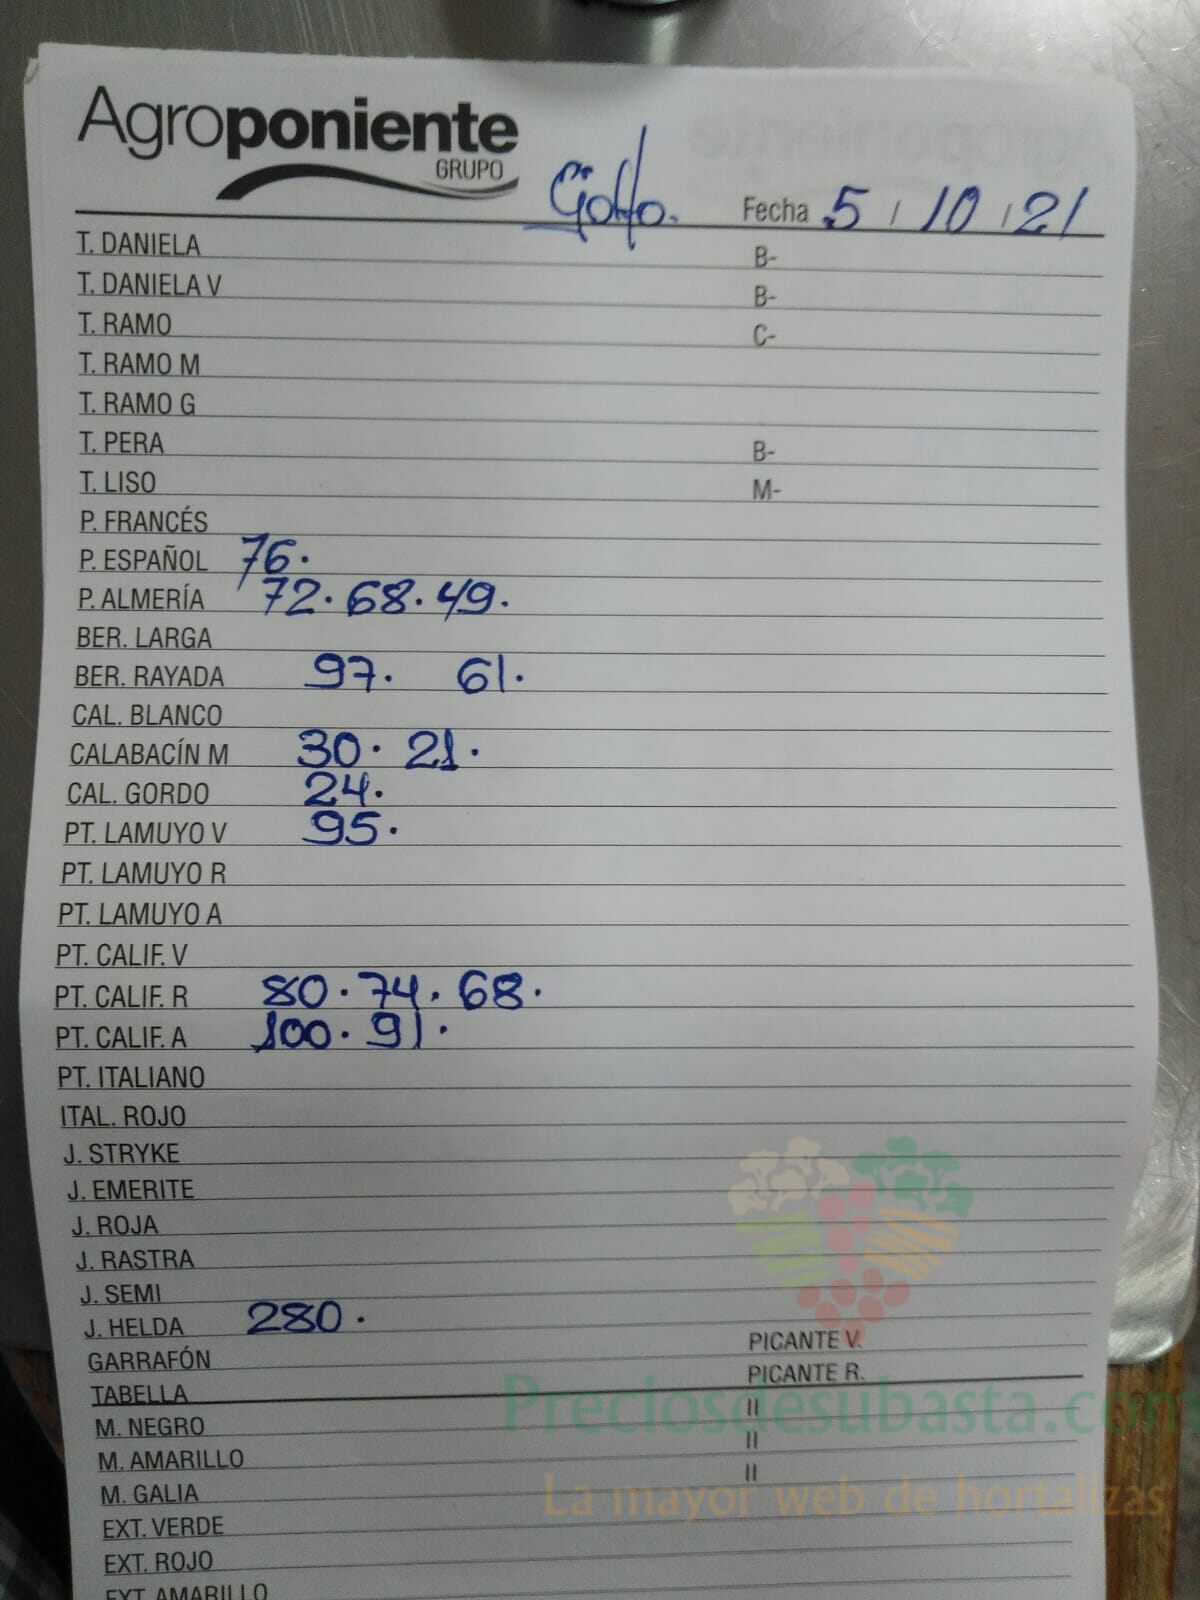 Agroponiente
GRUPO
Fecha 5 / 10 / 21
T. DANIELA B-
T. DANIELA V B-
T. RAMO C-
T. RAMO M
T. RAMO G
T. PERA B-
T. LISO M-
P. FRANCÉS
P. ESPAÑOL 76.
P. ALMERÍA 72. 68. 49.
BER. LARGA
BER. RAYADA 97. 61.
CAL. BLANCO
CALABACÍN M 30. 21.
CAL. GORDO 24.
PT. LAMUYO V 95.
PT. LAMUYO R
PT. LAMUYO A
PT. CALIF. V
PT. CALIF. R 80. 74. 68.
PT. CALIF. A 100. 91.
PT. ITALIANO
ITAL. ROJO
J. STRYKE
J. EMERITE
J. ROJA
J. RASTRA
J. SEMI
J. HELDA 280.
GARRAFÓN PICANTE V.
TABELLA PICANTE R.
M. NEGRO II
M. AMARILLO II
M. GALIA II
EXT. VERDE
EXT. ROJO
EXT. AMARILLO
Preciosdesubasta.com
La mayor web de hortalizas